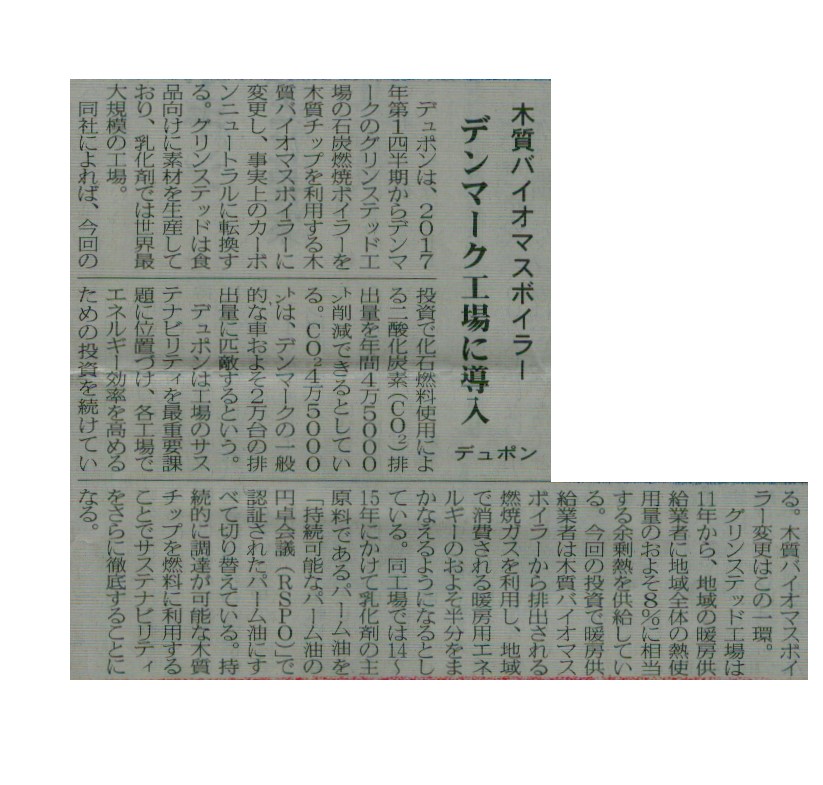 木質バイオマスボイラー
デンマーク工場に導入
デュポン
デュポンは、2017
年第1四半期からデンマ
ークのグリンステッド工
場の石炭燃焼ボイラーを
木質チップを利用する木
質バイオマスボイラーに
変更し、事実上のカーボ
ンニュートラルに転換す
る。グリンステッドは食
品向けに素材を生産して
おり、乳化剤では世界最
大規模の工場。
同社によれば、今回の
投資で化石燃料使用によ
る二酸化炭素(CO₂)排
出量を年間4万5000
㌧削減できるとしてい
る。CO₂4万5000
㌧は、デンマークの一般
的な車およそ2万台の排
出量に匹敵するという。
デュポンは工場のサス
テナビリティを最重要課
題に位置づけ、各工場で
エネルギー効率を高める
ための投資を続けてい
る。木質バイオマスボイ
ラー変更はこの一環。
グリンステッド工場は
11年から、地域の暖房供
給業者に地域全体の熱使
用量のおよそ8%に相当
する余剰熱を供給してい
る。今回の投資で暖房供
給業者は木質バイオマス
ボイラーから排出される
燃焼ガスを利用し、地域
で消費される暖房用エネ
ルギーのおよそ半分をま
かなえるようになるとし
ている。同工場では14～
15年にかけて乳化剤の主
原料であるパーム油を
「持続可能なパーム油の
円卓会議(RSPO)」で
認証されたパーム油にす
べて切り替えている。持
続的に調達が可能な木質
チップを燃料に利用する
ことでサステナビリティ
をさらに徹底することに
なる。